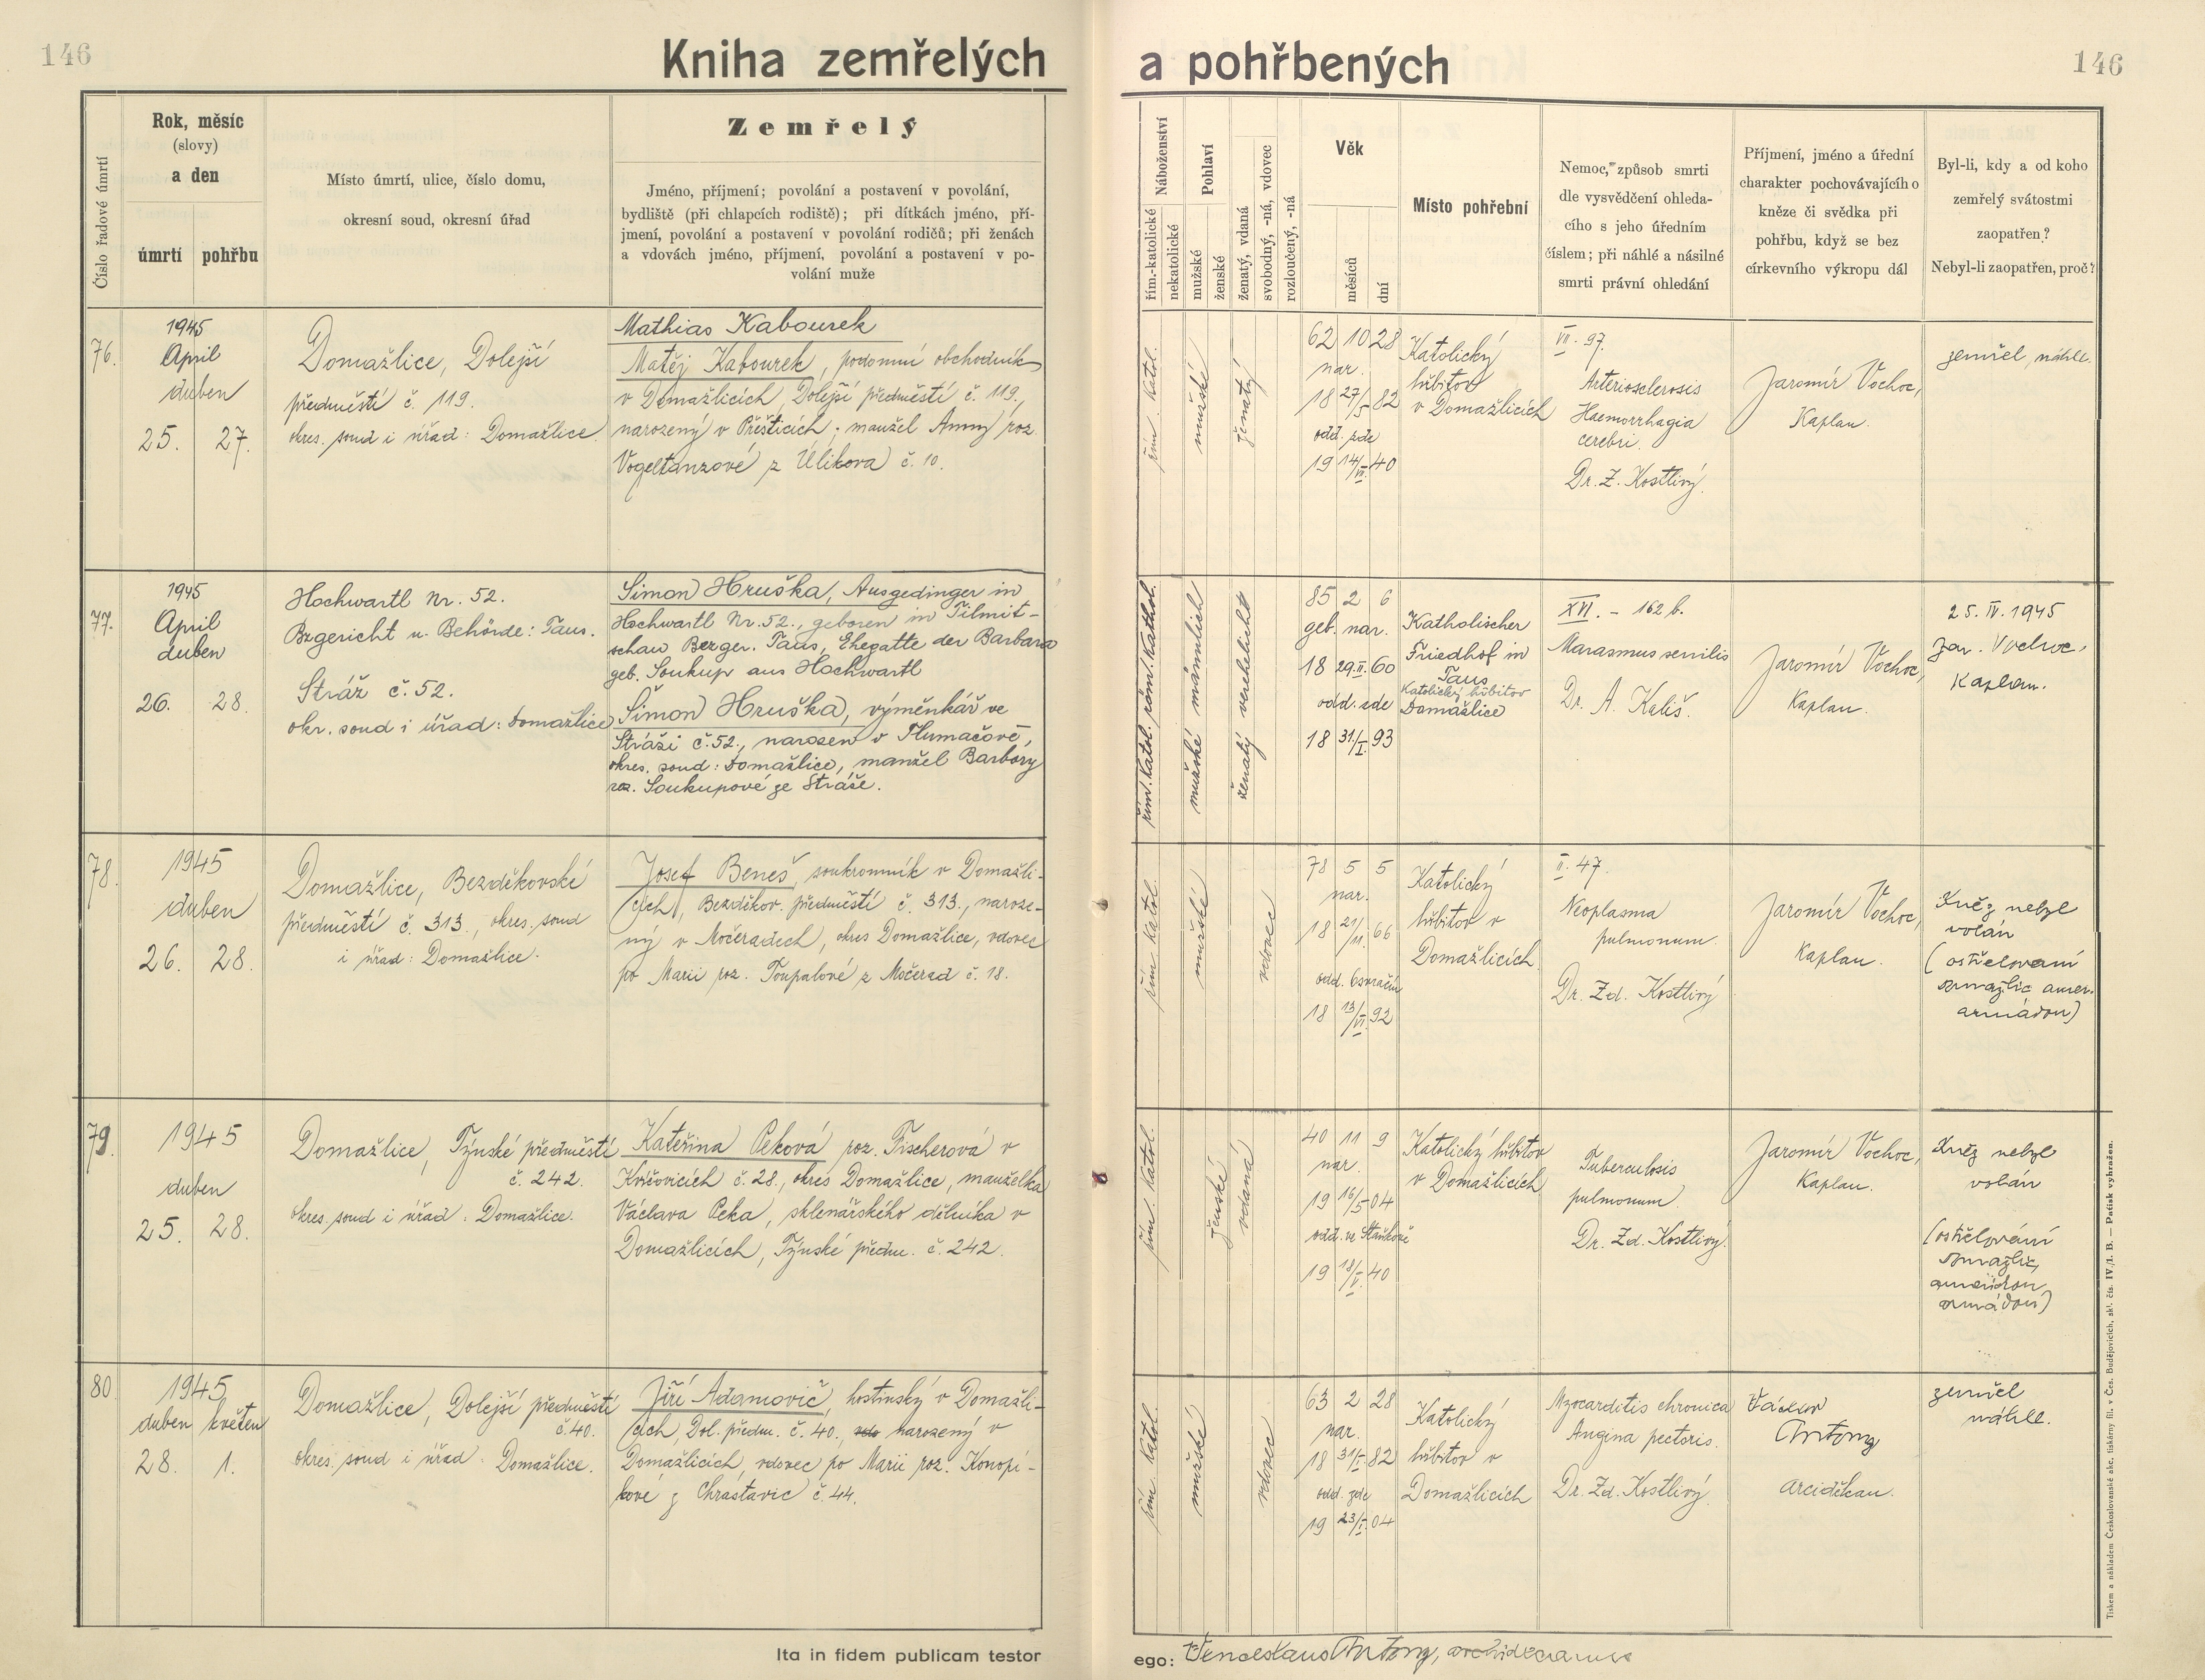 146
Kniha zemřelých a pohřbených
146
Číslo řadové úmrtí
Rok, měsíc
(slovy)
a den
úmrtí
pohřbu
Místo úmrtí, ulice, číslo domu,
okresní soud, okresní úřad
Zemřelý
Jméno, příjmení; povolání a postavení v povolání,
bydliště (při chlapcích rodiště); při dítkách jméno, pří-
jmení, povolání a postavení v povolání rodičů; při ženách
a vdovách jméno, příjmení, povolání a postavení v po-
volání muže
Náboženství
řím.-katolické
nekatolické
Pohlaví
mužské
ženské
ženatý, vdaná
svobodný, -ná, vdovec
rozloučený, -ná
Věk
měsíců
dní
Místo pohřební
Nemoc, způsob smrti
dle vysvědčení ohleda-
cího s jeho úředním
číslem; při náhlé a násilné
smrti právní ohledání
Příjmení, jméno a úřední
charakter pochovávajícího
kněze či svědka při
pohřbu, když se bez
církevního výkropu dál
Byl-li, kdy a od koho
zemřelý svátostmi
zaopatřen?
Nebyl-li zaopatřen, proč?
76.
1945
April
duben
25. 27.
Domažlice, Dolejší
předměstí č. 119.
okres. soud i úřad: Domažlice
Mathias Kabourek
Matěj Kabourek, podomní obchodník
v Domažlicích, Dolejší předměstí č. 119.,
narozený v Přešticích; manžel Anny roz.
Vogeltanzové z Úlíkova č. 10.
řím. katol.
mužské
ženatý
62 10 28
nar.
18 27/5 82
odd. zde
19 14/VII. 40
Katolický
hřbitov
v Domažlicích
VII. 97.
Arteriosclerosis
Haemorrhagia
cerebri.
Dr. Z. Kostlivý.
Jaromír Vochoc,
Kaplan.
zemřel náhle.
77.
1945
April
duben
26. 28.
Hochwartl Nr. 52.
Bzgericht u. Behörde: Taus.
Stráž č. 52.
okr. soud i úřad: Domažlice
Simon Hruška, Ausgedinger in
Hochwartl Nr. 52., geboren in Tilmit-
schau Bezger. Taus, Ehegatte der Barbara
geb. Soukup aus Hochwartl
Šimon Hruška, výměnkář ve
Stráži č. 52., narozen v Tlumačově,
okres. soud: Domažlice, manžel Barbory
roz. Soukupové ze Stráže.
řím. katol. röm. kathol.
mužské männlich
ženatý verehelicht
85 2 6
geb. nar.
18 29.II. 60
odd. zde
18 31/I. 93
Katholischer
Friedhof in
Taus
Katolický hřbitov
Domažlice
XVI. - 162 b.
Marasmus senilis
Dr. A. Kališ.
Jaromír Vochoc,
Kaplan.
25. IV. 1945
Jar. Vochoc,
Kaplan.
78.
1945
duben
26. 28.
Domažlice, Bezděkovské
předměstí č. 313., okres. soud
i úřad: Domažlice.
Josef Beneš, soukromník v Domažli-
cích, Bezděkov. předměstí č. 313., naroze-
ný v Močeradech, okres Domažlice, vdovec
po Marii roz. Toupalové z Močerad č. 18.
řím. katol.
mužské
vdovec
78 5 5
nar.
18 21/11. 66
odd. Osvračín
18 13/VI. 92
Katolický
hřbitov v
Domažlicích
II. 47.
Neoplasma
pulmonum.
Dr. Zd. Kostlivý
Jaromír Vochoc,
Kaplan.
Kněz nebyl
volán
(ostřelovaní
Domažlic amer.
armádou)
79.
1945
duben
25. 28.
Domažlice, Týnské předměstí
č. 242.
okres. soud i úřad: Domažlice.
Kateřina Peková roz. Fischerová v
Kvíčovicích č. 28., okres Domažlice, manželka
Václava Peka, sklenářského dělníka v
Domažlicích, Týnské předm. č. 242.
řím. katol.
ženské
vdaná
40 11 9
nar.
19 16/5 04
odd. ve Staňkově
19 18/V. 40
Katolický hřbitov
v Domažlicích
Tuberculosis
pulmonum.
Dr. Zd. Kostlivý.
Jaromír Vochoc,
Kaplan.
Kněz nebyl
volán
(ostřelování
Domažlic
armádou)
80.
1945
duben květen
28. 1.
Domažlice, Dolejší předměstí
č. 40.
okres. soud i úřad: Domažlice.
Jiří Adamovič, hostinský v Domažli-
cích, Dol. předm. č. 40., vdo narozený v
Domažlicích, vdovec po Marii roz. Konopí-
kové z Chrastavic č. 44.
řím. katol.
mužské
vdovec
63 2 28
nar.
18 31/I. 82
odd. zde
19 23/I. 04
Katolický
hřbitov v
Domažlicích
Myocarditis chronica
Angina pectoris.
Dr. Zd. Kostlivý.
Václav
Antony
arciděkan.
zemřel
náhle.
Ita in fidem publicam testor
ego: Venceslaus Antony, archidecanus
Tiskem a nákladem Československé akc. tiskárny fil. v Čes. Budějovicích, skl. čís. IV./1. B. — Patisk vyhražen.